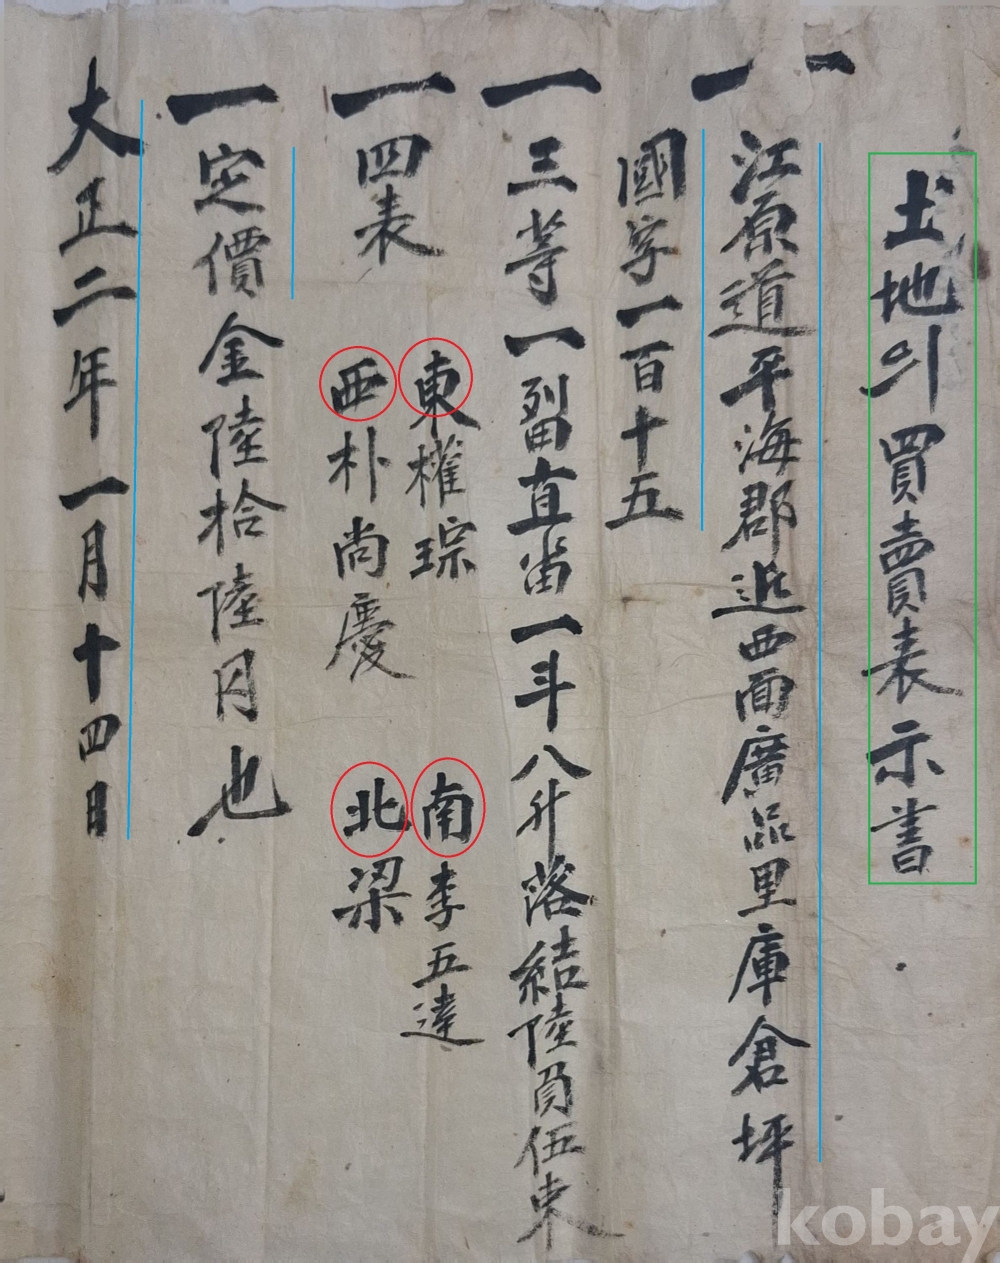 土地의買賣表示書
一 江原道平海郡近西面廣品里庫倉坪
國字一百十五
一 三等一直畓一斗八升落結陸負伍束
一 四表
東權琮 南李五達
西朴尚慶 北梁
一 定價金陸拾陸円也
大正二年一月十四日
kobay